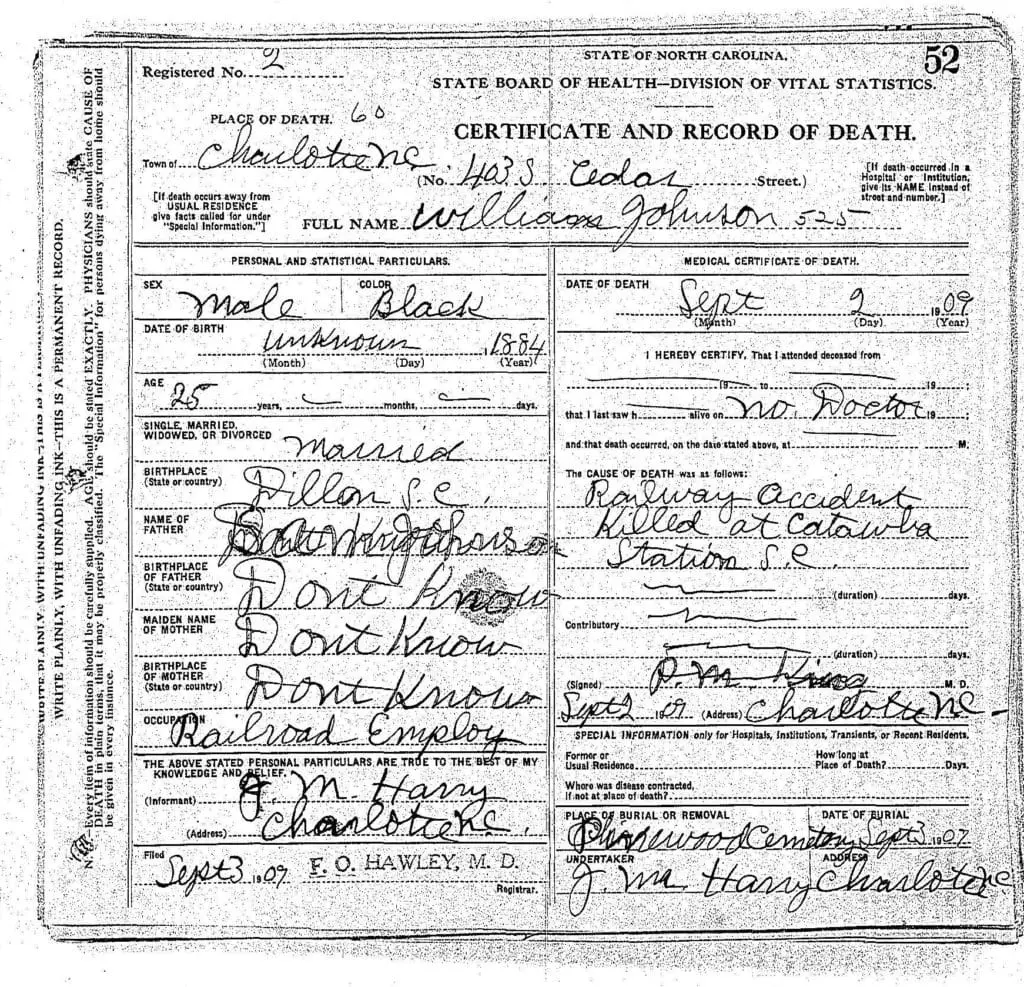 52
STATE OF NORTH CAROLINA.
Registered No. 2
STATE BOARD OF HEALTH—DIVISION OF VITAL STATISTICS.
PLACE OF DEATH. 60
CERTIFICATE AND RECORD OF DEATH.
Town of Charlotte NC (No. 403 S. Cedar Street.)
[If death occurred in a
Hospital or Institution,
give its NAME instead of
street and number.]
[If death occurs away from
USUAL RESIDENCE
give facts called for under
"Special Information."]
FULL NAME William Johnson 525
PERSONAL AND STATISTICAL PARTICULARS.
SEX Male
COLOR Black
DATE OF BIRTH
Unknown, 1884
(Month) (Day) (Year)
AGE
25 years, months, days.
SINGLE, MARRIED,
WIDOWED, OR DIVORCED Married
BIRTHPLACE
(State or country) Dillon S.C.
NAME OF
FATHER
BIRTHPLACE
OF FATHER
(State or country) Dont Know
MAIDEN NAME
OF MOTHER Dont Know
BIRTHPLACE
OF MOTHER
(State or country) Dont Know
OCCUPATION
Railroad Employ
THE ABOVE STATED PERSONAL PARTICULARS ARE TRUE TO THE BEST OF MY
KNOWLEDGE AND BELIEF.
(Informant) J. M. Harry
(Address) Charlotte N.C.
Filed
Sept 3 1909 F. O. HAWLEY, M. D.
Registrar.
MEDICAL CERTIFICATE OF DEATH.
DATE OF DEATH
Sept 2 1909
(Month) (Day) (Year)
I HEREBY CERTIFY, That I attended deceased from
19 to 19 ;
that I last saw h alive on No. Doctor 19 ;
and that death occurred, on the date stated above, at M.
The CAUSE OF DEATH was as follows:
Railway Accident
Killed at Catawba
Station S.C.
(duration) days.
Contributory
(duration) days.
(Signed) P. M. King M. D.
Sept 2 1909 (Address) Charlotte NC
SPECIAL INFORMATION only for Hospitals, Institutions, Transients, or Recent Residents.
Former or
Usual Residence
How long at
Place of Death? Days.
Where was disease contracted,
If not at place of death?
PLACE OF BURIAL OR REMOVAL
Pinewood Cemetery
DATE OF BURIAL
Sept 3 1909
UNDERTAKER
J. M. Harry
ADDRESS
Charlotte NC
WRITE PLAINLY, WITH UNFADING INK—THIS IS A PERMANENT RECORD.
N. B.—Every item of information should be carefully supplied. AGE should be stated EXACTLY. PHYSICIANS should state CAUSE OF
DEATH in plain terms, that it may be properly classified. The "Special Information" for persons dying away from home should
be given in every instance.